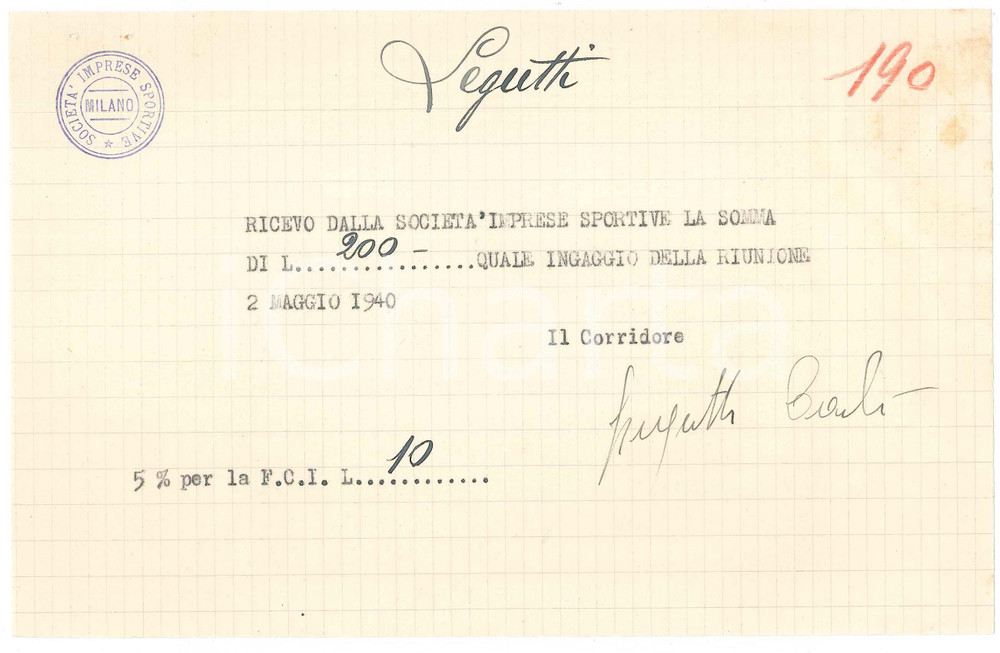 SOCIETA' IMPRESE SPORTIVE
MILANO
Legutti
190
RICEVO DALLA SOCIETA' IMPRESE SPORTIVE LA SOMMA
DI L. 200 - ................QUALE INGAGGIO DELLA RIUNIONE
2 MAGGIO 1940
Il Corridore
5 % per la F.C.I. L. 10 ............
iCharta